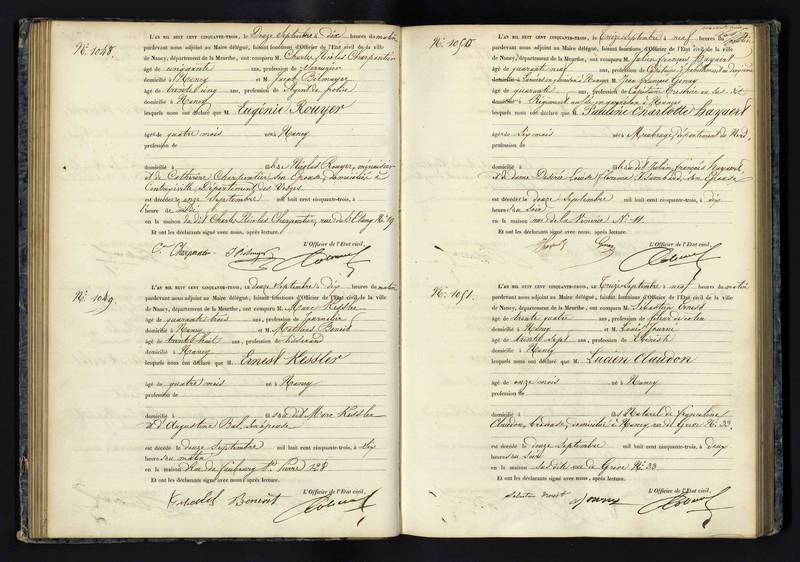 N° 1048.
L'AN MIL HUIT CENT CINQUANTE-TROIS, le Douze Septembre à dix heures du matin
pardevant nous adjoint au Maire délégué, faisant fonctions d'Officier de l'Etat civil de la ville
de Nancy, département de la Meurthe, ont comparu M. Charles Nicolas Charpentier
âgé de cinquante ans, profession de
domicilié à Nancy et M. Joseph
âgé de trente cinq ans, profession de Agent de police
domicilié à Nancy
lesquels nous ont déclaré que M. Eugénie Rouyer
âgée de quatre mois née à Nancy
profession de
domicilié à fille de Nicolas Rouyer, menuisier
et de Catherine Charpentier, son épouse, domiciliés à
Contrexéville, Département des Vosges
est décédée le onze Septembre mil huit cent cinquante-trois, à
heure de midi
en la maison du dit Charles Nicolas Charpentier, rue de l'Etang N° 19
Et ont les déclarants signé avec nous, après lecture.
L'Officier de l'Etat civil,
Cn Charpentier
N° 1049.
L'AN MIL HUIT CENT CINQUANTE-TROIS, le douze Septembre à dix heures du matin
pardevant nous adjoint au Maire délégué, faisant fonctions d'Officier de l'Etat civil de la ville
de Nancy, département de la Meurthe, ont comparu M. Marc Kessler
âgé de quarante trois ans, profession de Journalier
domicilié à Nancy et M. Mathias Benoit
âgé de trente huit ans, profession de tisserand
domicilié à Nancy
lesquels nous ont déclaré que M. Ernest Kessler
âgé de quatre mois né à Nancy
profession de
domicilié à fils du dit Marc Kessler
et d'Augustine Bal, son épouse
est décédé le douze Septembre mil huit cent cinquante-trois, à dix
heures du matin
en la maison rue du faubourg St. Pierre 128
Et ont les déclarants signé avec nous, après lecture.
L'Officier de l'Etat civil,
Benoit
N° 1050
L'AN MIL HUIT CENT CINQUANTE-TROIS, le Treize Septembre à neuf heures du matin
pardevant nous adjoint au Maire délégué, faisant fonctions d'Officier de l'Etat civil de la ville
de Nancy, département de la Meurthe, ont comparu M. Julien François Hayaert
âgé de quarante neuf ans, profession de Capitaine
domicilié à Nancy et M. Jean François Genay
âgé de quarante ans, profession de Capitaine Trésorier au dit
domicilié à Régiment en garnison à Nancy
lesquels nous ont déclaré que M. Pauline Charlotte Hayaert
âgée de dix mois née à Maubeuge, département du Nord,
profession de
domicilié à fille du dit Julien, François Hayaert
et de dame Désirée Louise Florence son épouse
est décédée le douze Septembre mil huit cent cinquante-trois, à dix
heures du soir
en la maison rue de la Pépinière N° 11
Et ont les déclarants signé avec nous, après lecture.
L'Officier de l'Etat civil,
Genay
N° 1051.
L'AN MIL HUIT CENT CINQUANTE-TROIS, le Treize Septembre à neuf heures du matin
pardevant nous adjoint au Maire délégué, faisant fonctions d'Officier de l'Etat civil de la ville
de Nancy, département de la Meurthe, ont comparu M. Sébastien Ernest
âgé de trente quatre ans, profession de fileur de coton
domicilié à Nancy et M. Louis
âgé de trente sept ans, profession de
domicilié à Nancy
lesquels nous ont déclaré que M. Lucien Claudon
âgé de onze mois né à Nancy
profession de
domicilié à fils naturel de
Claudon, domiciliée à Nancy rue de Grève N° 33.
est décédé le douze Septembre mil huit cent cinquante-trois, à deux
heures du soir
en la maison sus dite rue de Grève N° 33
Et ont les déclarants signé avec nous, après lecture.
L'Officier de l'Etat civil,